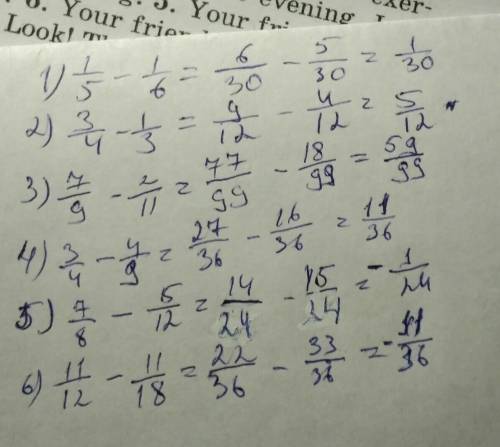 6. Your frien
evening. I
exer-
5. Your fri
Look! Th
1) 1/5 - 1/6 = 6/30 - 5/30 = 1/30
2) 3/4 - 1/3 = 9/12 - 4/12 = 5/12
3) 7/9 - 2/11 = 77/99 - 18/99 = 59/99
4) 3/4 - 4/9 = 27/36 - 16/36 = 11/36
5) 7/8 - 5/12 = 14/24 - 15/24 = -1/24
6) 11/12 - 11/18 = 22/36 - 33/36 = -11/36